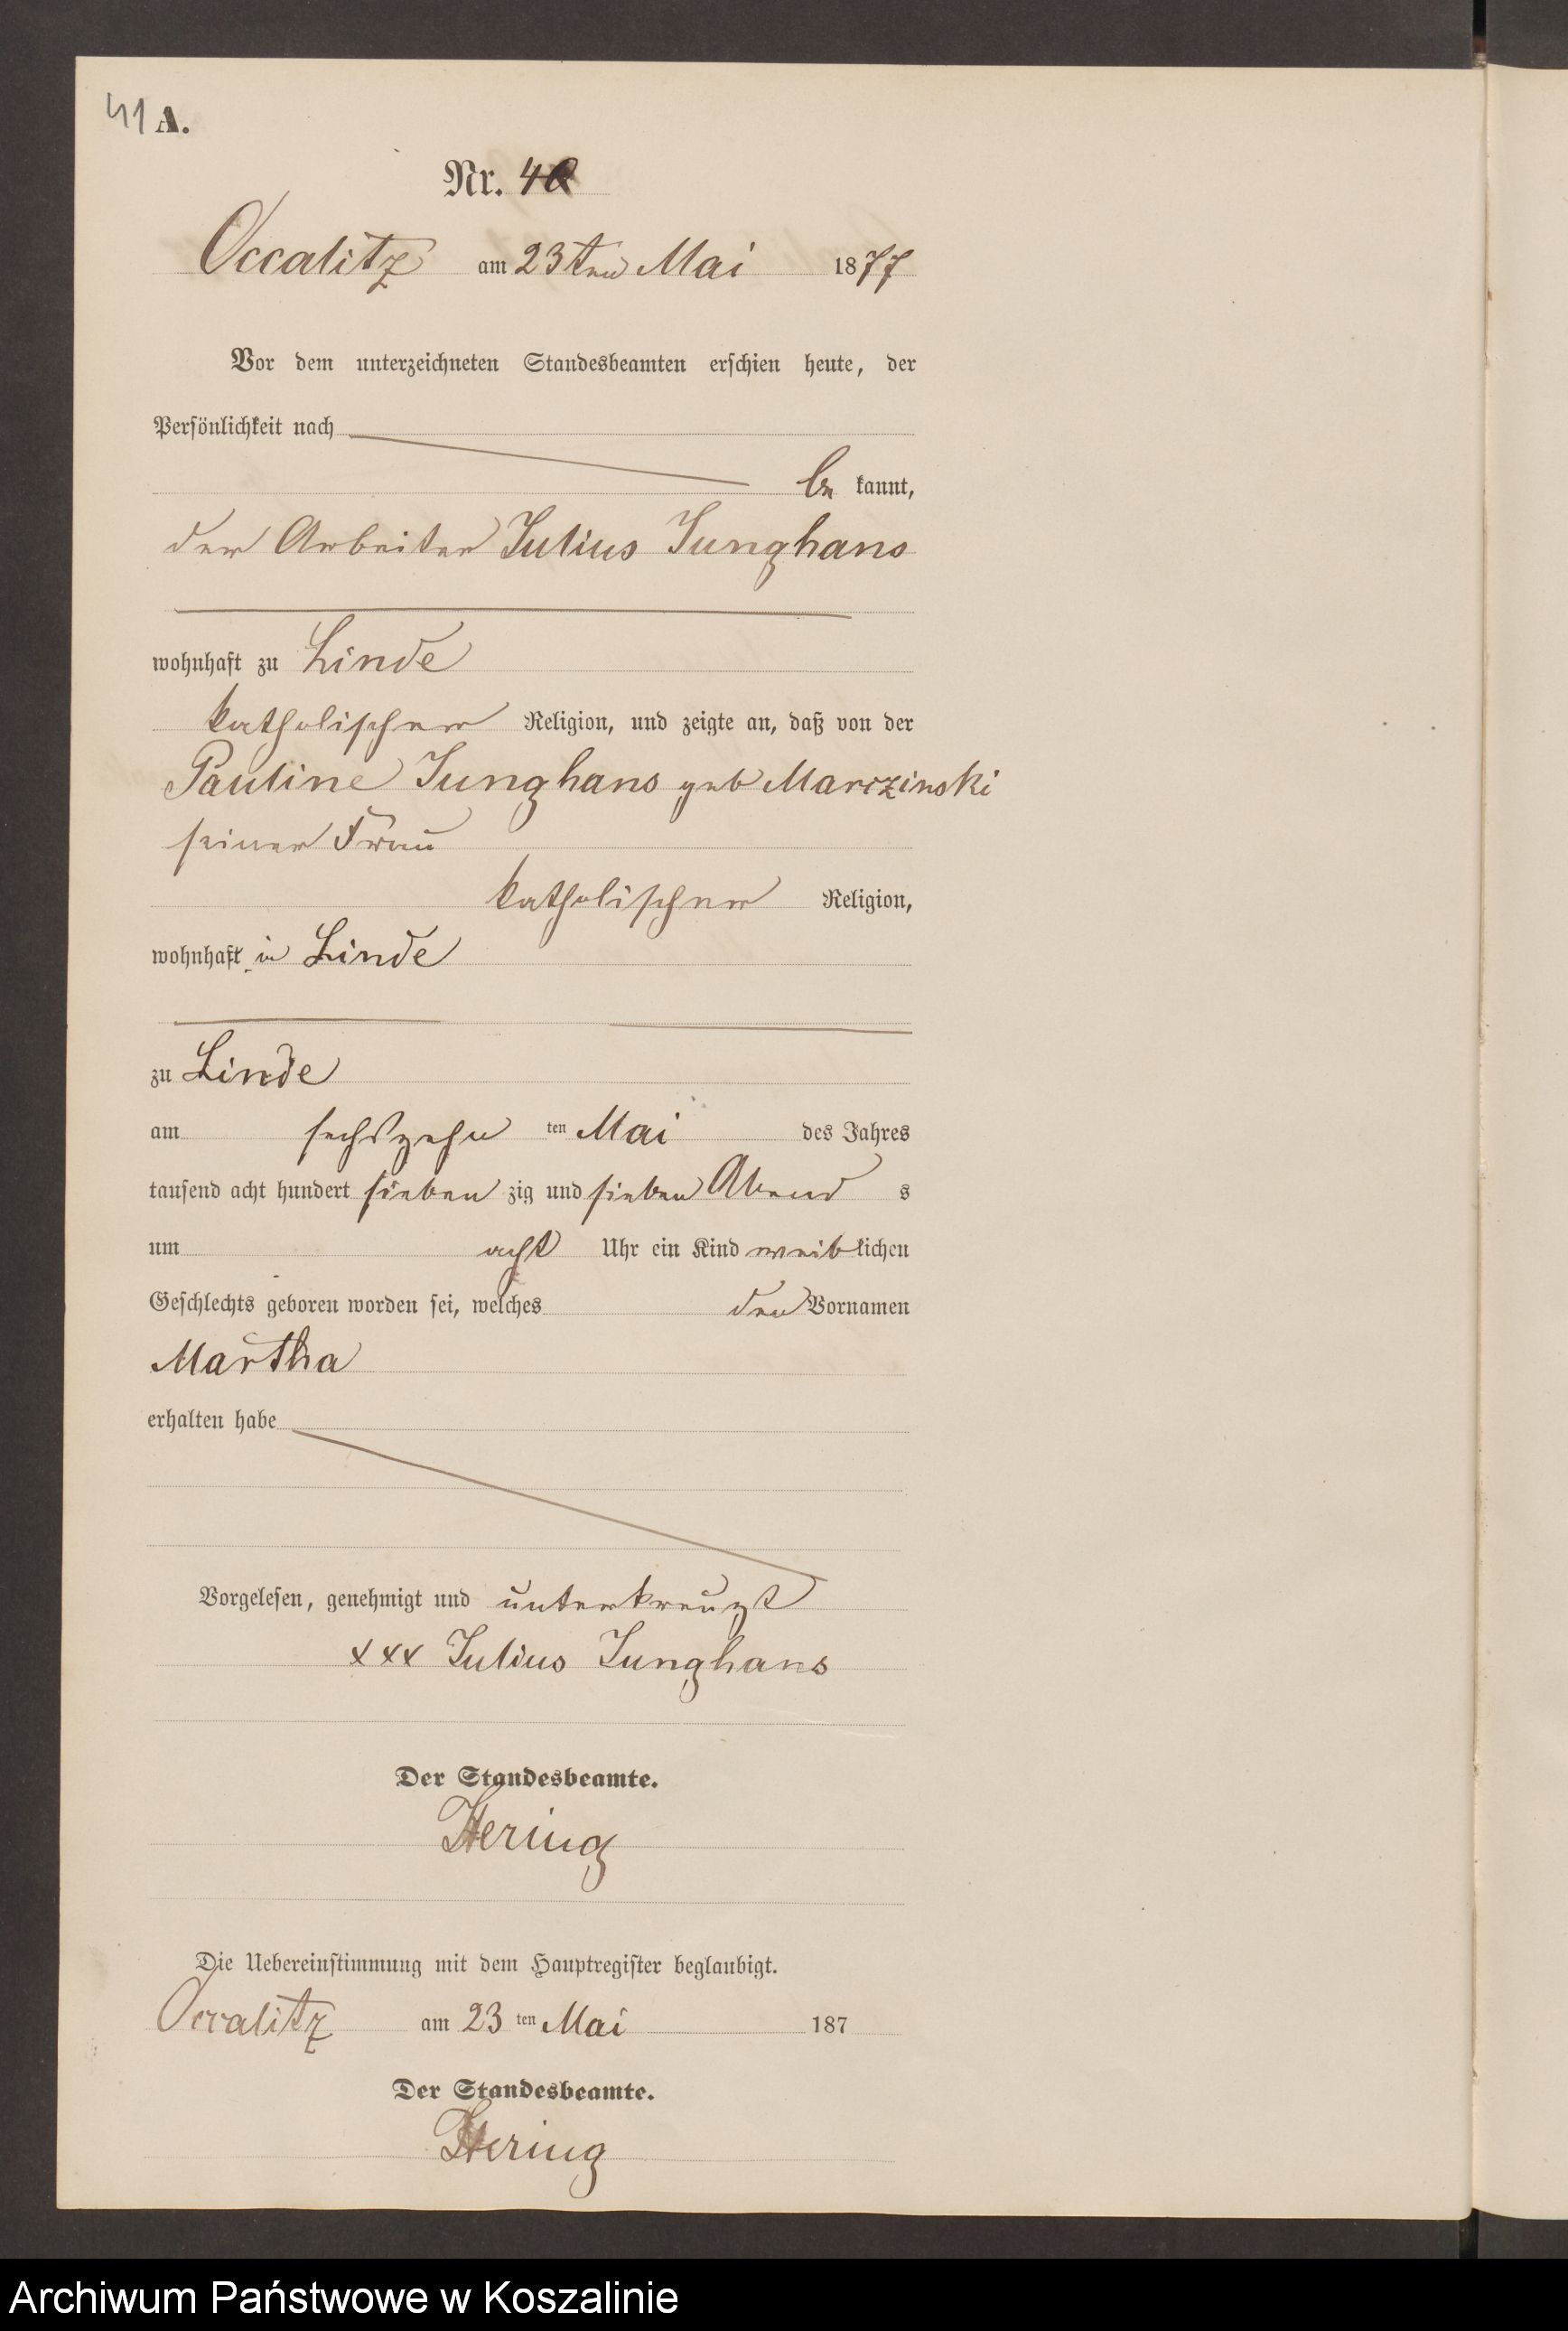 41 A.
Nr. 40
Occalitz am 23ten Mai 1877
Vor dem unterzeichneten Standesbeamten erschien heute, der
Persönlichkeit nach
be kannt,
der Arbeiter Julius Junghans
wohnhaft zu Linde
katholischer Religion, und zeigte an, daß von der
Pauline Junghans geb Marczinski
seiner Frau
katholischer Religion,
wohnhaft in Linde
zu Linde
am sechszehn ten Mai des Jahres
tausend acht hundert sieben zig und sieben Abend s
um acht Uhr ein Kind weib lichen
Geschlechts geboren worden sei, welches den Vornamen
Martha
erhalten habe
Vorgelesen, genehmigt und unterkreuzt
xxx Julius Junghans
Der Standesbeamte.
Hering
Die Uebereinstimmung mit dem Hauptregister beglaubigt.
Occalitz am 23 ten Mai 187
Der Standesbeamte.
Hering
Archiwum Państwowe w Koszalinie